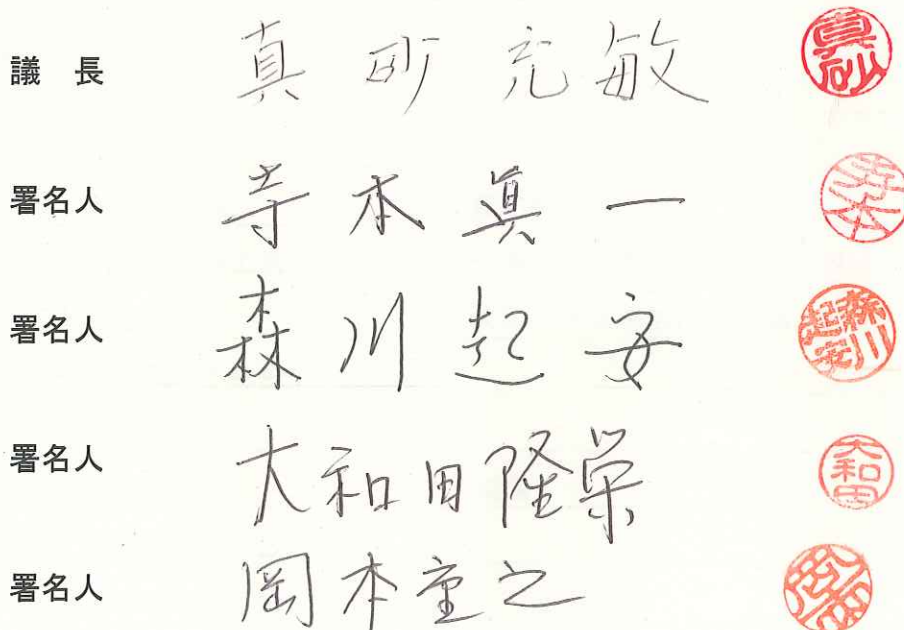 議長 真砂充敏 真砂
署名人 寺本眞一 寺本
署名人 森川起安 森川起安
署名人 大和田隆栄 大和田
署名人 岡本重之